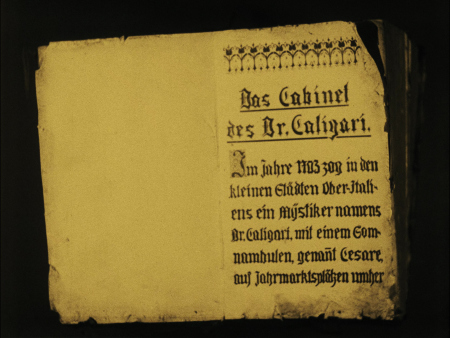 Das Cabinet
des Dr. Caligari.
Im Jahre 1703 zog in den
kleinen Städten Ober-Itali-
ens ein Mystiker namens
Dr. Caligari, mit einem Som-
nambulen, genan̄t Cesare,
auf Jahrmarktsplätzen umher